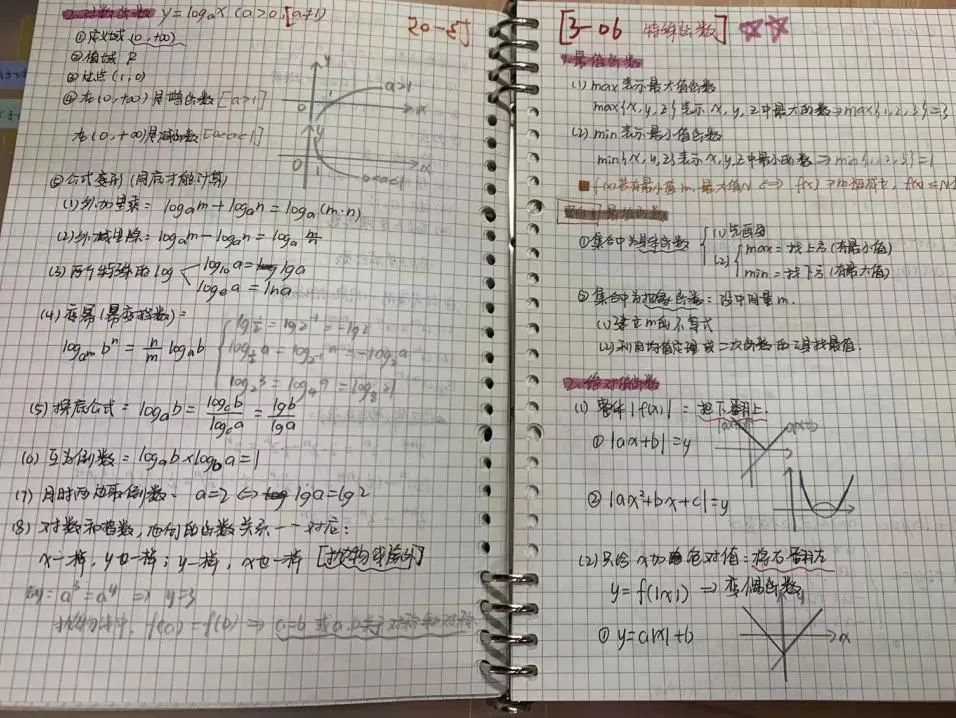 2.对数函数 y=logₐx (a>0,[a≠1)
20-5]
①定义域(0,+∞)
②值域 R
③过点(1,0)
④在(0,+∞)是增函数[a>1]
在(0,+∞)是减函数[0<a<1]
a>1
x
y
0
1
x
0<a<1
⑤公式变形(同底才能计算)
(1)外加里乘:logₐm+logₐn=logₐ(m·n)
(2)外减里除:logₐm-logₐn=logₐ m/n
(3)两个特殊的log log₁₀a=lga
logₑa=lna
(4)变幂(幂变对数):
log_{a^m} b^n = n/m logₐb
lg 1/2 = lg2⁻¹ = -lg2
log₂3=log₄9=log₈
(5)换底公式:logₐb= log_c b / log_c a = lgb/lga
(6)互为倒数:logₐb×log_b a=1
(7)同时两边取对数、a=2⇔lga=lg2
(8)对数和指数,他们的函数关系一一对应:
x一样,y也一样;y一样,x也一样[抛物线除外]
a³=a^y ⇒ y=3
抛物线中,f(a)=f(b)⇒a=b或a、b关于对称轴对称
[3-06 特殊函数]☆☆
1.最值函数
(1)max表示最大值函数
max{x,y,z}表示x,y,z中最大的数⇒max{1,2,3}=3
(2)min表示最小值函数
min{x,y,z}表示x,y,z中最小的数⇒min{1,2,3}=1
f(x)若有最小值m,最大值N⇔f(x)≥m恒成立,f(x)≤N
最值函数
①集合中为具体函数 (1)先画图
(2) max=找上方(有最小值)
min=找下方(有最大值)
②集合中为抽象函数:设中间量m.
(1)建立m的不等式
(2)利用均值定理或二次函数的工具找最值.
2.绝对值函数
(1)整体|f(x)|:把下翻上.
①|ax+b|=y
|ax+b|
ax+b
②|ax²+bx+c|=y
(2)只给x加绝对值:将右翻左
y=f(|x|)⇒变偶函数
①y=a|x|+b
y
x